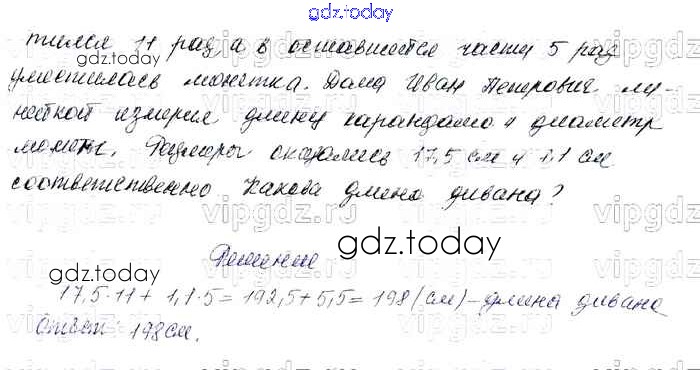 gdz.today
тился 11 раз, а в оставшейся части 5 раз
уместилась монетка. Дома Иван Петрович ли-
нейкой измерил длину карандаша и диаметр
монеты. Размеры оказались 17,5 см и 1,1 см
соответственно Какова длина дивана?
Решение
gdz.today
17,5·11 + 1,1·5 = 192,5 + 5,5 = 198 (см) - длина дивана
gdz.today
Ответ: 198 см.